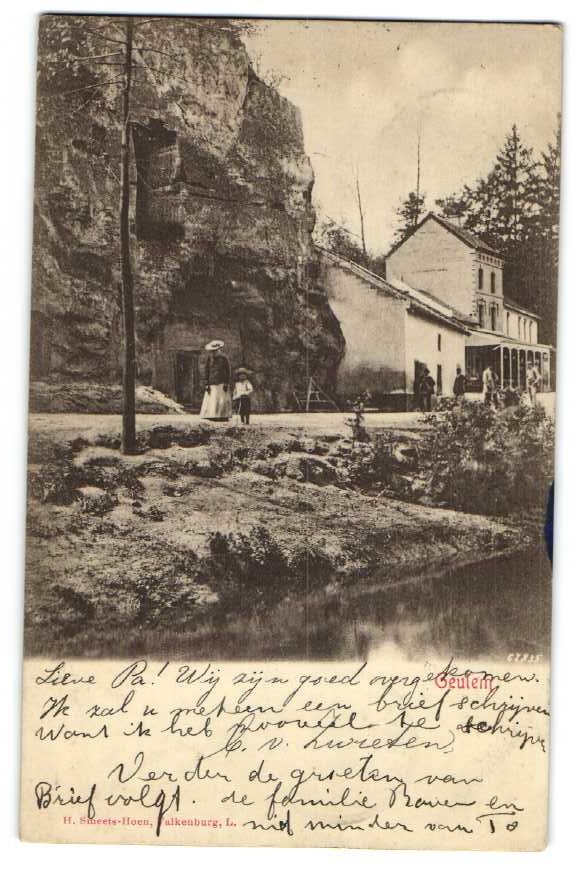 67335
Geulem
Lieve Pa! Wij zijn goed overgekomen.
Ik zal u meteen een brief schrijven
Want ik heb zooveel te schrijve
C. v.
Verder de groeten van
Brief volgt. de familie en
niet minder van To
H. Smeets-Hoen, Valkenburg, L.